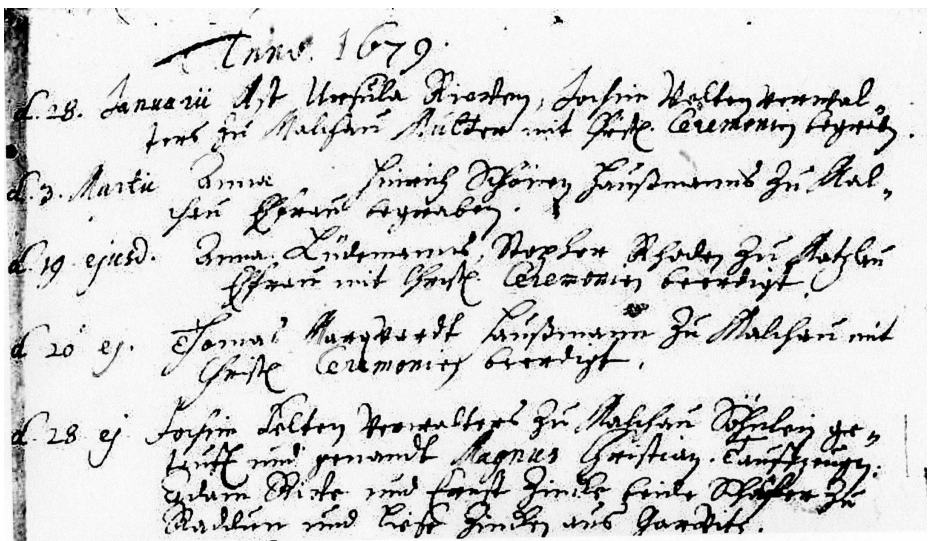 Anno. 1679.
d. 28. Januarii Ist Ursula Rieken, Jochim Velten verwal-
ters zu Malchau Mutter mit Christl. Ceremonien begraben.
d. 3. Martii Anna Hinrich Schönen Haußmanns zu Mal-
chau Ehfrau begraben.
d. 19 ejusd. Anna Lüdemanns, Stopher Rhoden zu
Ehfrau mit Christl. Ceremonien beerdigt.
d. 20 ej. Thomas Marqvardt Haußmann zu Malchau mit
Christl. Ceremonien beerdigt.
d. 28 ej Jochim Velten Verwalters zu Malchau Söhnlein ge-
taufft und genandt Magnus Christian. Tauffzeugen:
Adam und Ernst Zincke beide Schäffer zu
und Liese Zincken aus